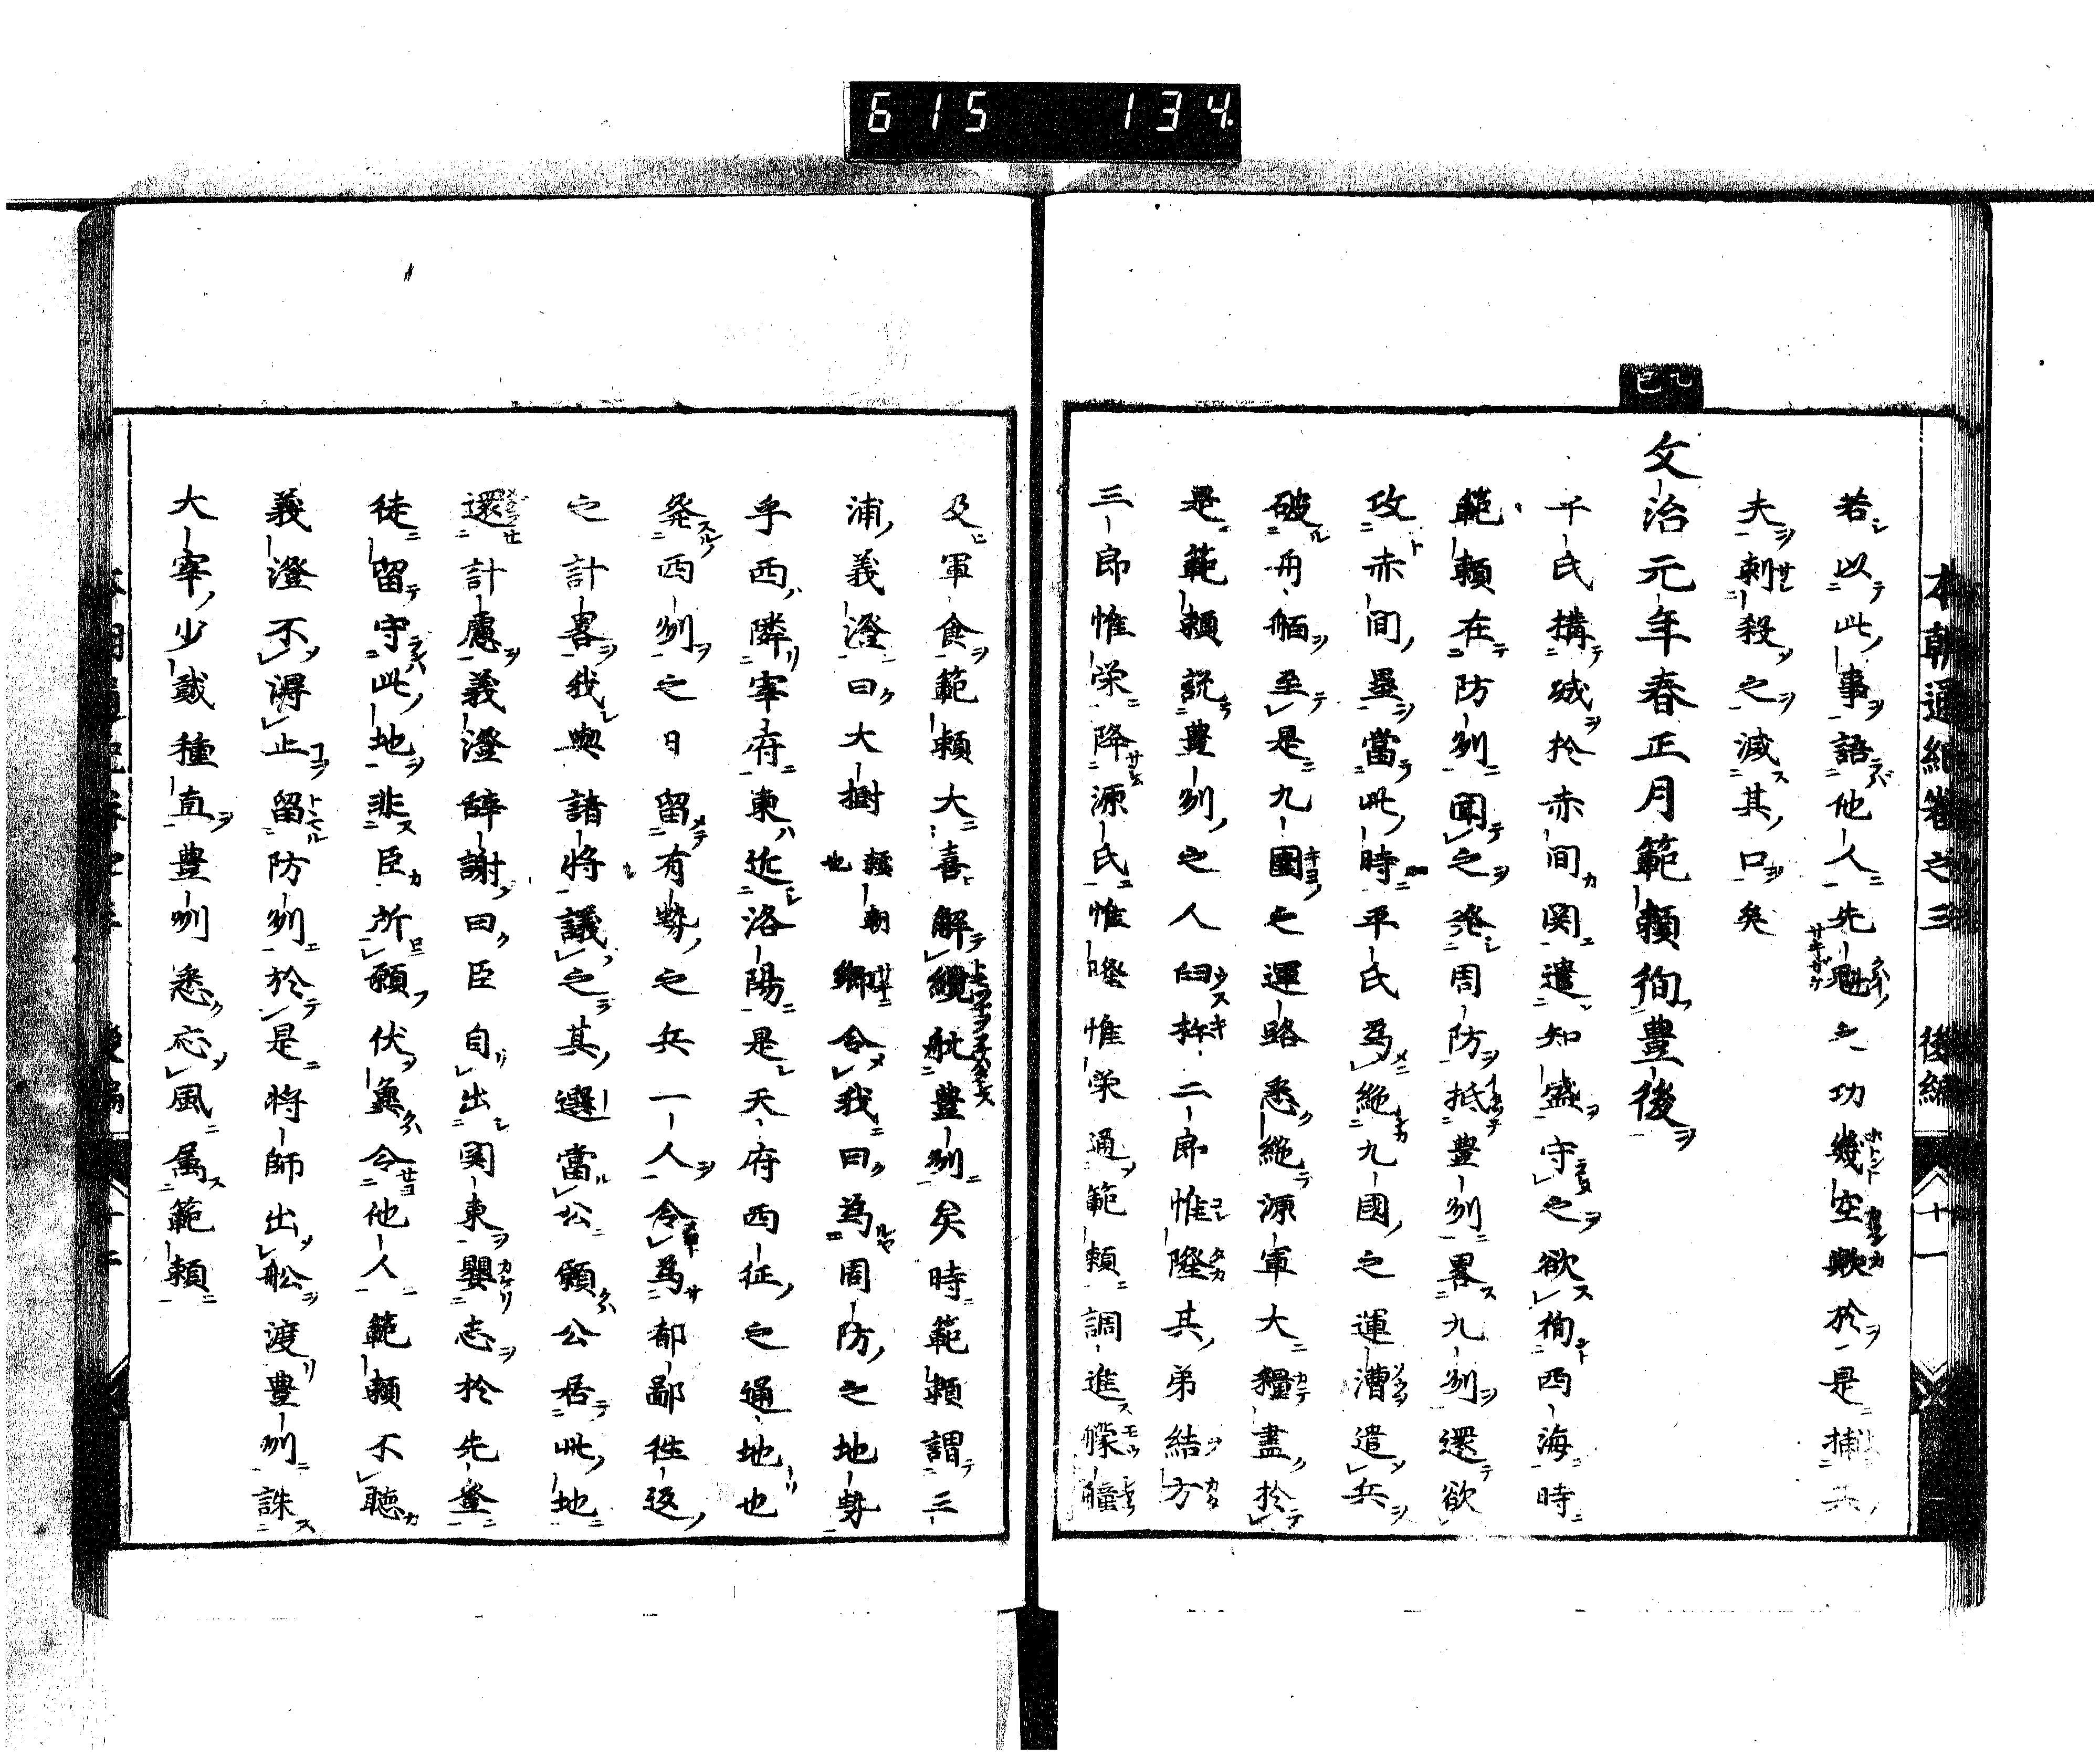 615 134
本朝通紀卷之三 後編 十一
若以此事語他人先魁之功幾空歟於是捕夫
夫刺殺之滅其口矣
乙巳
文治元年春正月範頼徇豊後
平氏搆城於赤間関遣知盛守之欲徇西海時
範頼在防州聞之発周防抵豊州畧九州還欲
攻赤間壘當此時平氏為絶九國之運漕遣兵
破舟舶至是九國之運路悉絶源軍大糧盡於
是範頼説豊州之人臼杵二郎惟隆其弟緒方
三郎惟栄降源氏惟隆惟栄通範頼調進艨艟
及軍食範頼大喜解纜豊州矣時範頼謂三
浦義澄曰大樹頼朝卿也令我曰為周防之地勢
乎西隣宰府東近洛陽是天府西征之通地也
発西州之日留有勢之兵一人令為都鄙往返
之計畧我與諸將議之其選當公願公居此地
還計慮義澄辞謝曰臣自出関東嬰志於先登
徒留守此地非臣所願伏冀令他人範頼不聴
義澄不得止留防州於是將師出舩渡豊州誅
大宰少貳種直豊州悉応風属範頼